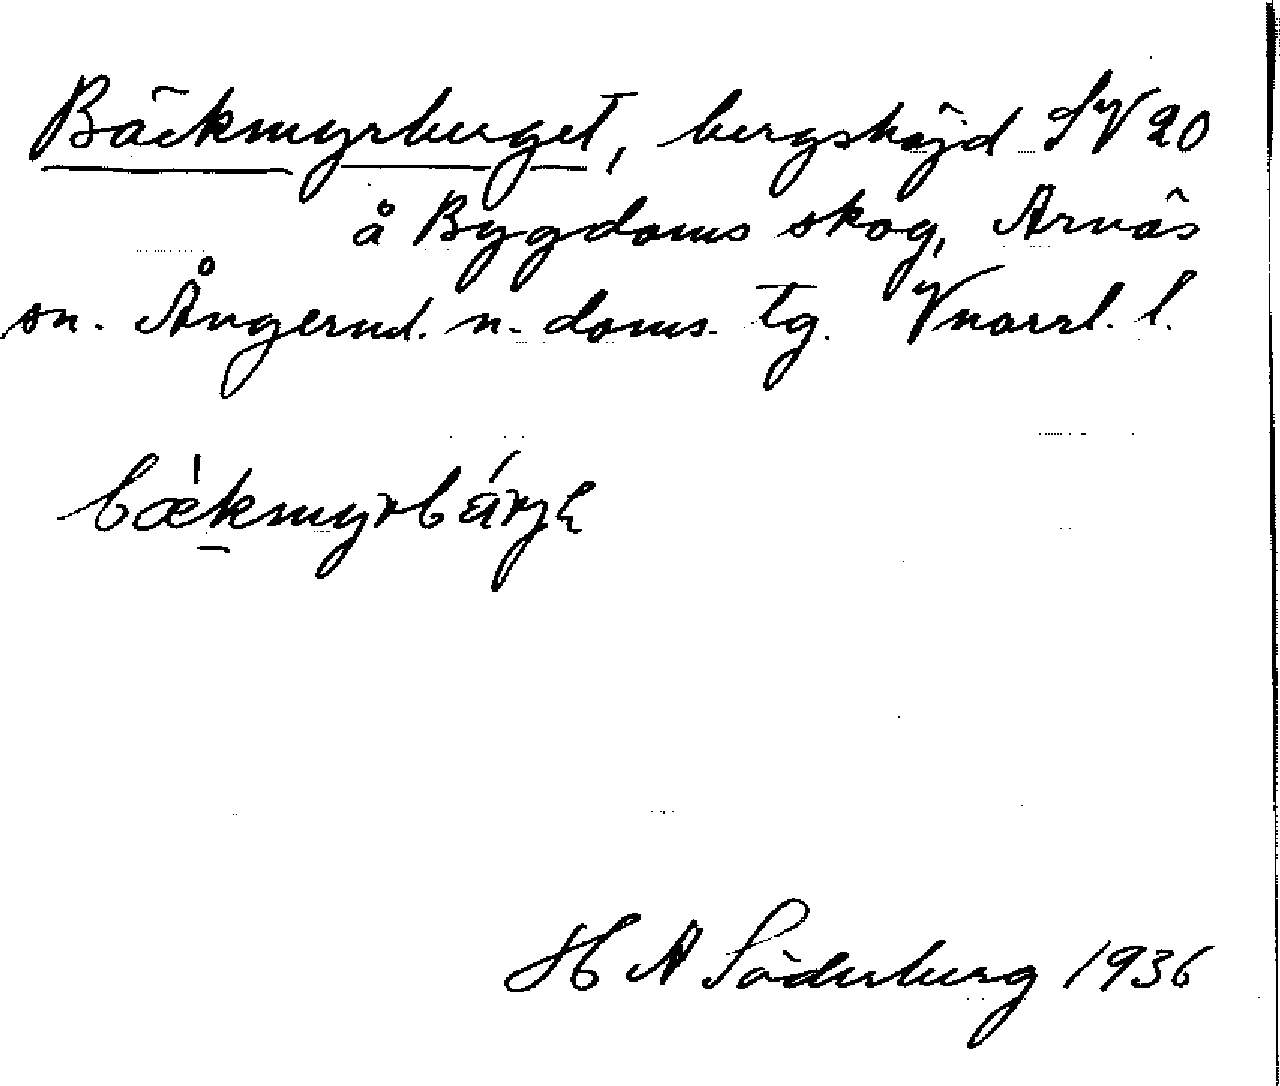 Bäckmyrberget, bergshöjd SV 20
å Bygdoms skog, Arnäs
sn. Ångerml. n. doms. tg. Vnorrl. l.
bækmyrbárjɛ
H A Söderberg 1936